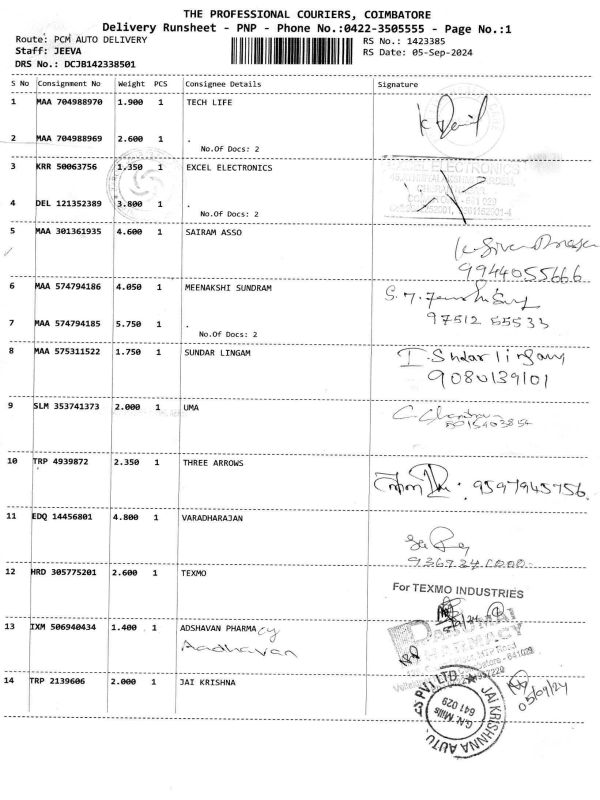 THE PROFESSIONAL COURIERS, COIMBATORE
Delivery Runsheet - PNP - Phone No.:0422-3505555 - Page No.:1
Route: PCM AUTO DELIVERY
RS No.: 1423385
Staff: JEEVA
RS Date: 05-Sep-2024
DRS No.: DCJB142338501
S No Consignment No Weight PCS Consignee Details Signature
1 MAA 704988970 1.900 1 TECH LIFE
2 MAA 704988969 2.600 1 .
No.Of Docs: 2
3 KRR 50063756 1.350 1 EXCEL ELECTRONICS
ELECTRONICS
4 DEL 121352389 3.800 1 .
No.Of Docs: 2
5 MAA 301361935 4.600 1 SAIRAM ASSO
9944055666
6 MAA 574794186 4.050 1 MEENAKSHI SUNDRAM
7 MAA 574794185 5.750 1 .
97512 55533
No.Of Docs: 2
8 MAA 575311522 1.750 1 SUNDAR LINGAM
I. Sndarlingam
9080139101
9 SLM 353741373 2.000 1 UMA
10 TRP 4939872 2.350 1 THREE ARROWS
9597945756.
11 EDQ 14456801 4.800 1 VARADHARAJAN
12 HRD 305775201 2.600 1 TEXMO
For TEXMO INDUSTRIES
13 IXM 506940434 1.400 1 ADSHAVAN PHARMA cy
Aadhavan
MTP Road
641029
14 TRP 2139606 2.000 1 JAI KRISHNA
05/09/24
JAI KRISHNNA AUTO
S PVT LTD
G.N. Mills
641 029